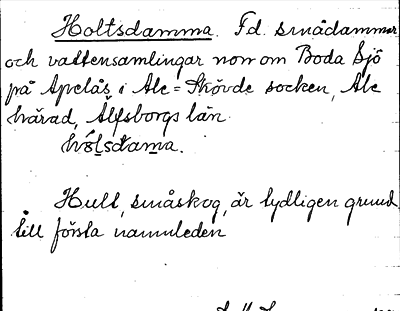 Holtsdamma. Fd. smådammar
och vattensamlingar norr om Boda Sjö
på Apelås i Ale=Skövde socken, Ale
härad, Älfsborgs län.
hòlsdama.
Hult, småskog, är tydligen grund
till första namnleden